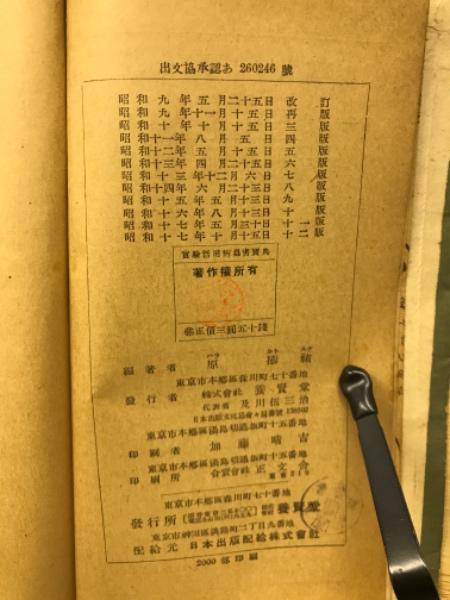 出文協承認あ 260246 號
昭和九年五月二十五日改訂
昭和九年十一月十五日再版
昭和十年十月十五日三版
昭和十一年八月五日四版
昭和十二年五月十五日五版
昭和十三年四月二十五日六版
昭和十三年十二月六日七版
昭和十四年六月二十三日八版
昭和十五年五月十三日九版
昭和十六年八月十三日十版
昭和十七年五月三十日十一版
昭和十七年十月十五日十二版
著作權所有
改正價三圓五十錢
編著者 原
東京市本鄕區森川町七十番地
發行者 株式會社 養賢堂
代表者 及川伍三治
東京市本鄕區湯島切通坂町十五番地
印刷者 加藤晴吉
東京市本鄕區湯島切通坂町十五番地
印刷所 合資會社 正文舍
東京市本鄕區森川町七十番地
發行所 養賢堂
東京市神田區淡路町二丁目九番地
配給元 日本出版配給株式會社
2000 部印刷